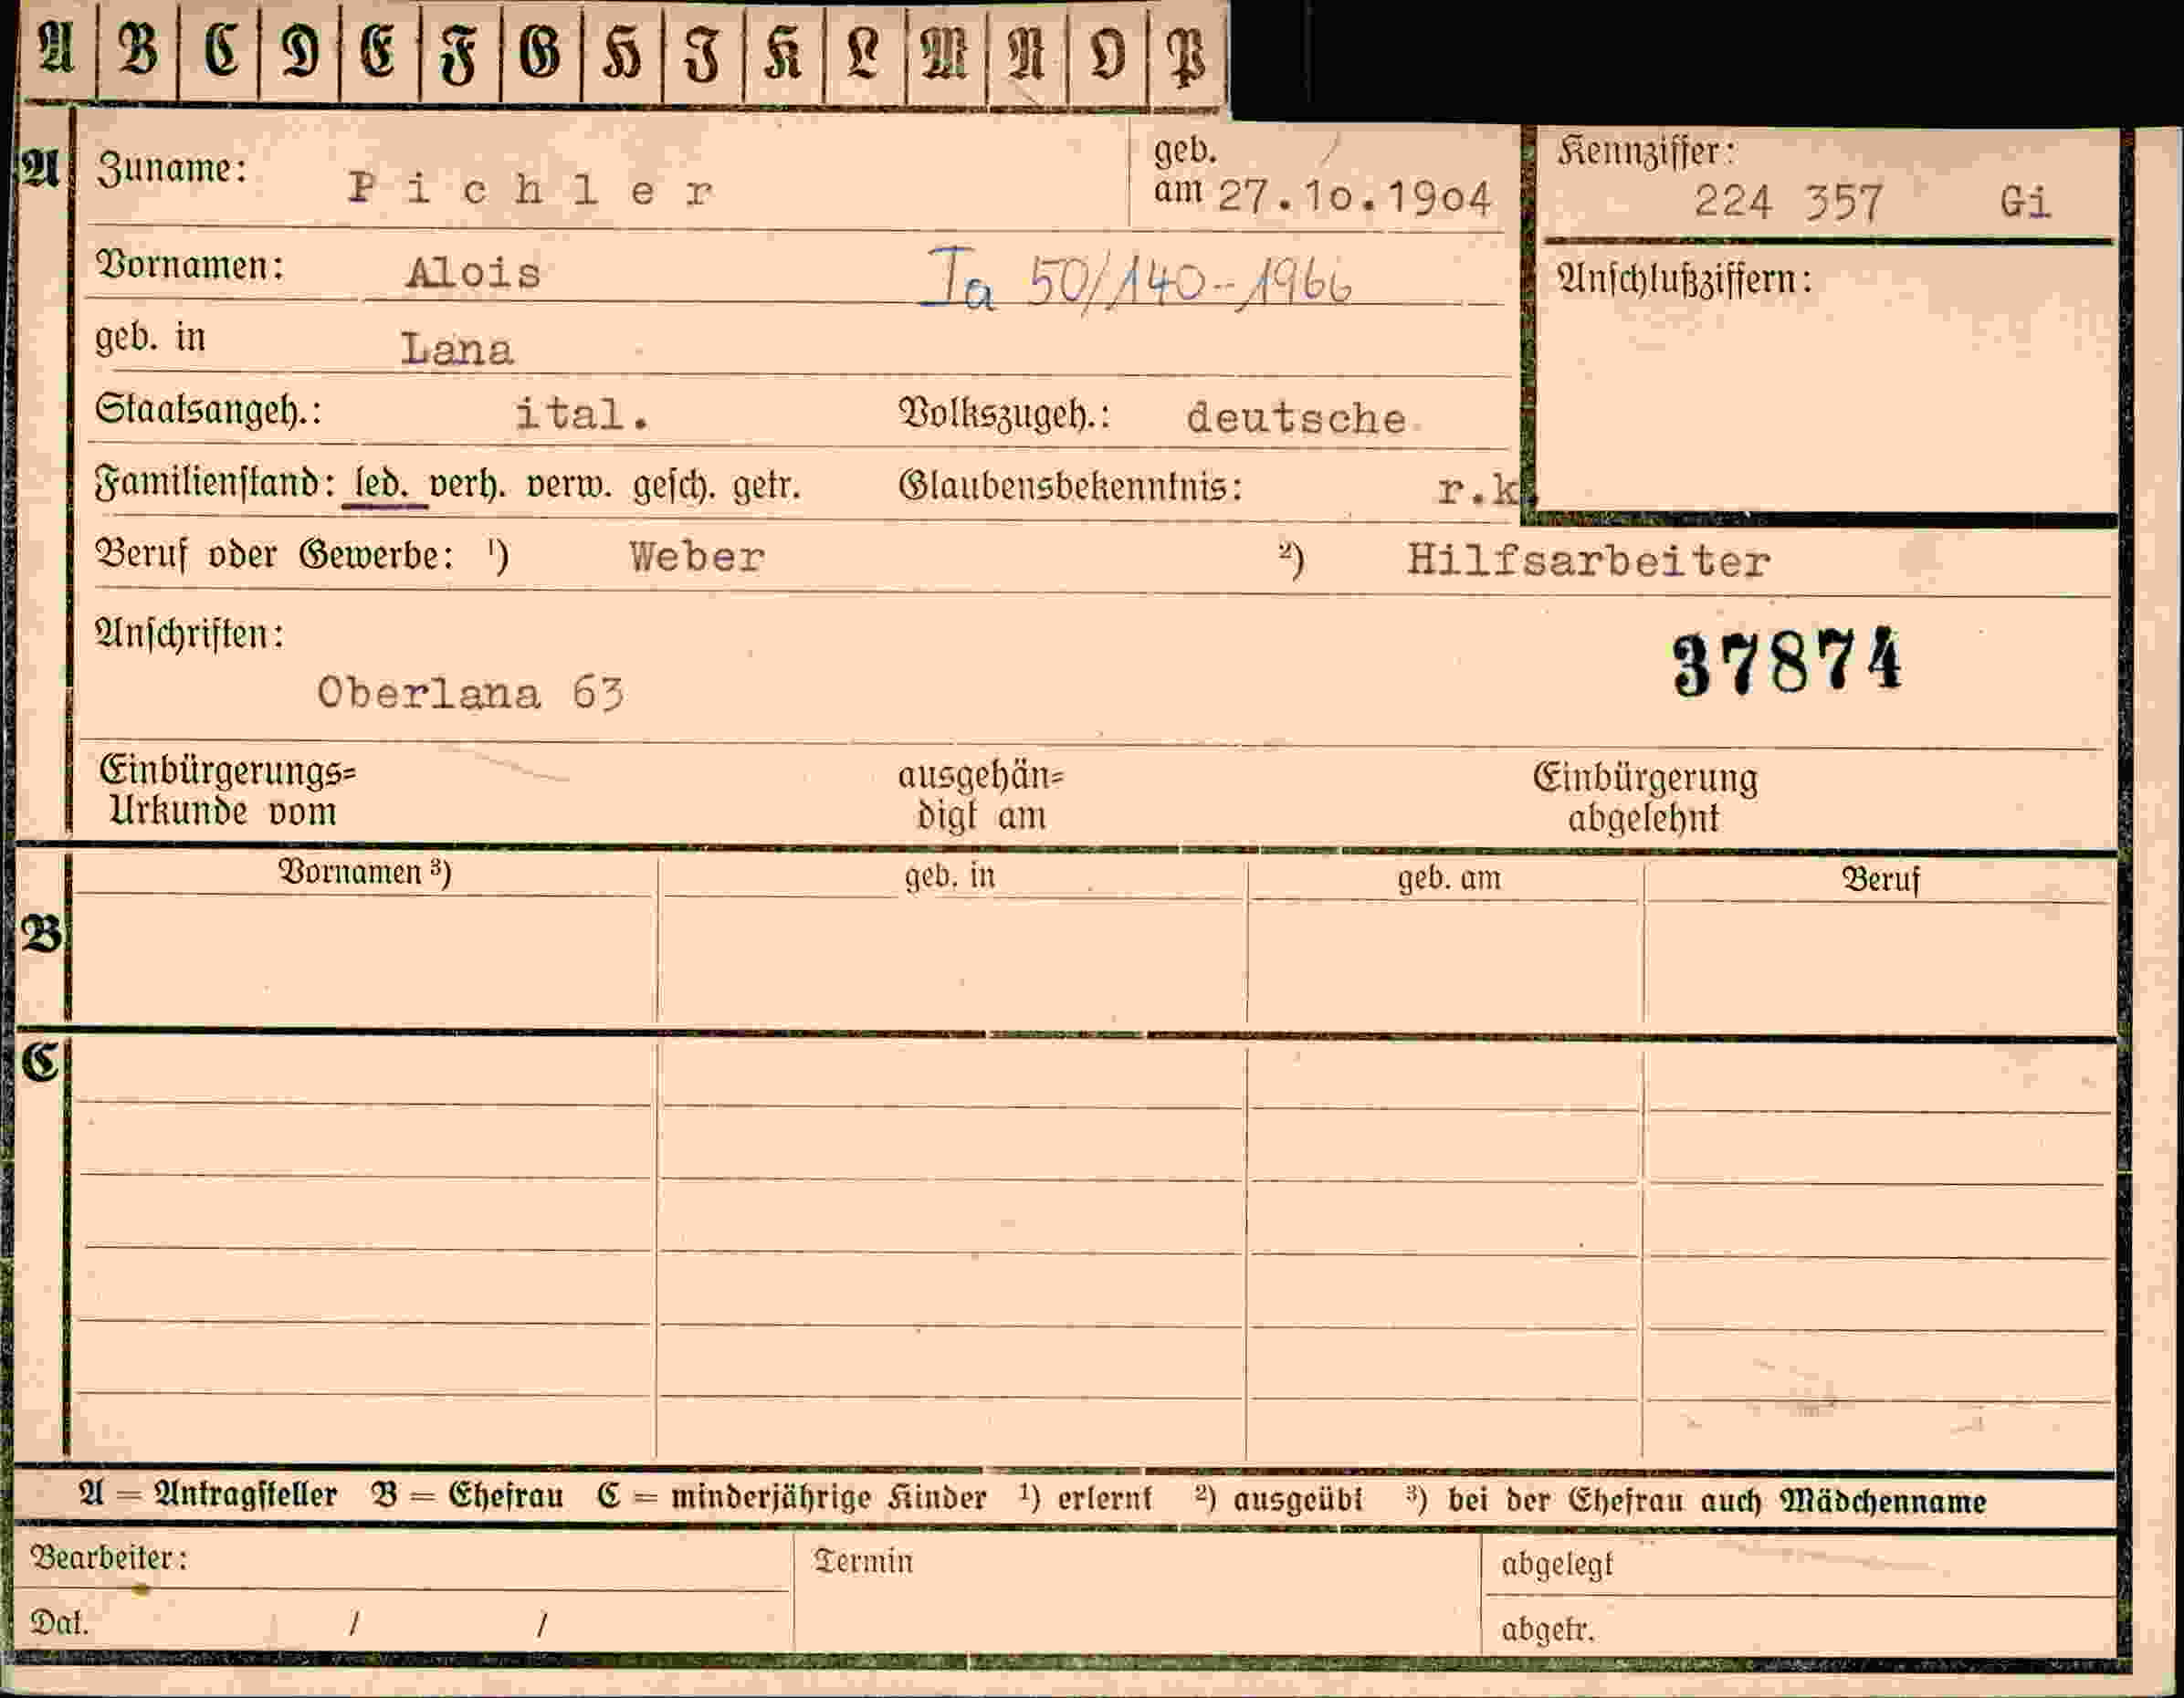 A B C D E F G H I K L M N O P
A Zuname: Pichler geb. am 27.10.1904 Kennziffer: 224 357 Gi
Vornamen: Alois Ia 50/140--1966 Anschlußziffern:
geb. in Lana
Staatsangeh.: ital. Volkszugeh.: deutsche
Familienstand: led. verh. verw. gesch. getr. Glaubensbekenntnis: r.k.
Beruf oder Gewerbe: ¹) Weber ²) Hilfsarbeiter
Anschriften: 37874
Oberlana 63
Einbürgerungs= ausgehän= Einbürgerung
Urkunde vom digt am abgelehnt
Vornamen ³) geb. in geb. am Beruf
B
C
A = Antragsteller B = Ehefrau C = minderjährige Kinder ¹) erlernt ²) ausgeübt ³) bei der Ehefrau auch Mädchenname
Bearbeiter: Termin abgelegt
Dat. / / abgetr.